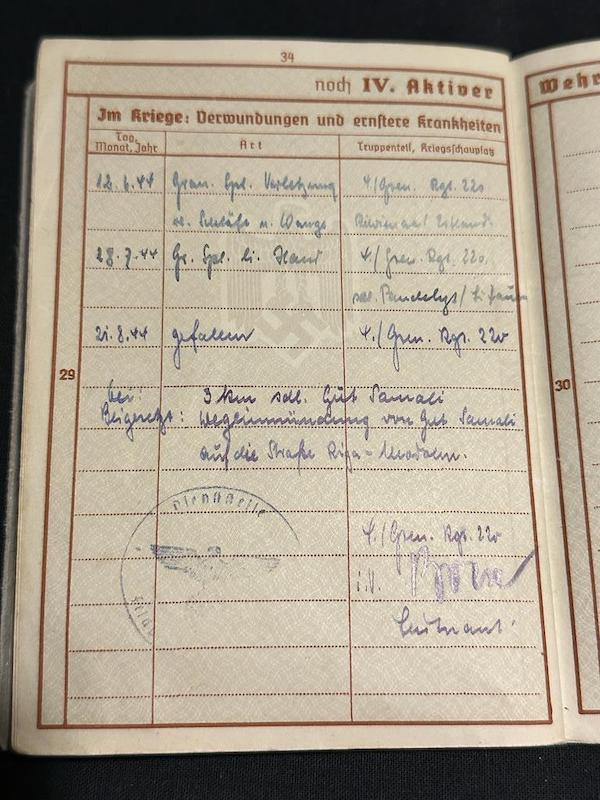 34
noch IV. Aktiver
Wehr
Im Kriege: Verwundungen und ernstere Krankheiten
Tag, Monat, Jahr
Art
Truppenteil, Kriegsschauplatz
12.6.44 Gran. Spl. Verletzung 4./Gren. Rgt. 220
Schläfe u. Wange
28.7.44 Gr. Spl. li. Hand 4./Gren. Rgt. 220
sdl. Pandelys/Litauen
21.8.44 gefallen 4./Gren. Rgt. 220
29
30
bei: 3 km sdl. Gut Samali
Beigesetzt: Wegeinmündung von Gut Samali
auf die Straße Riga - Modohn.
Dienststelle
4./Gren. Rgt. 220
i.V.
Leutnant